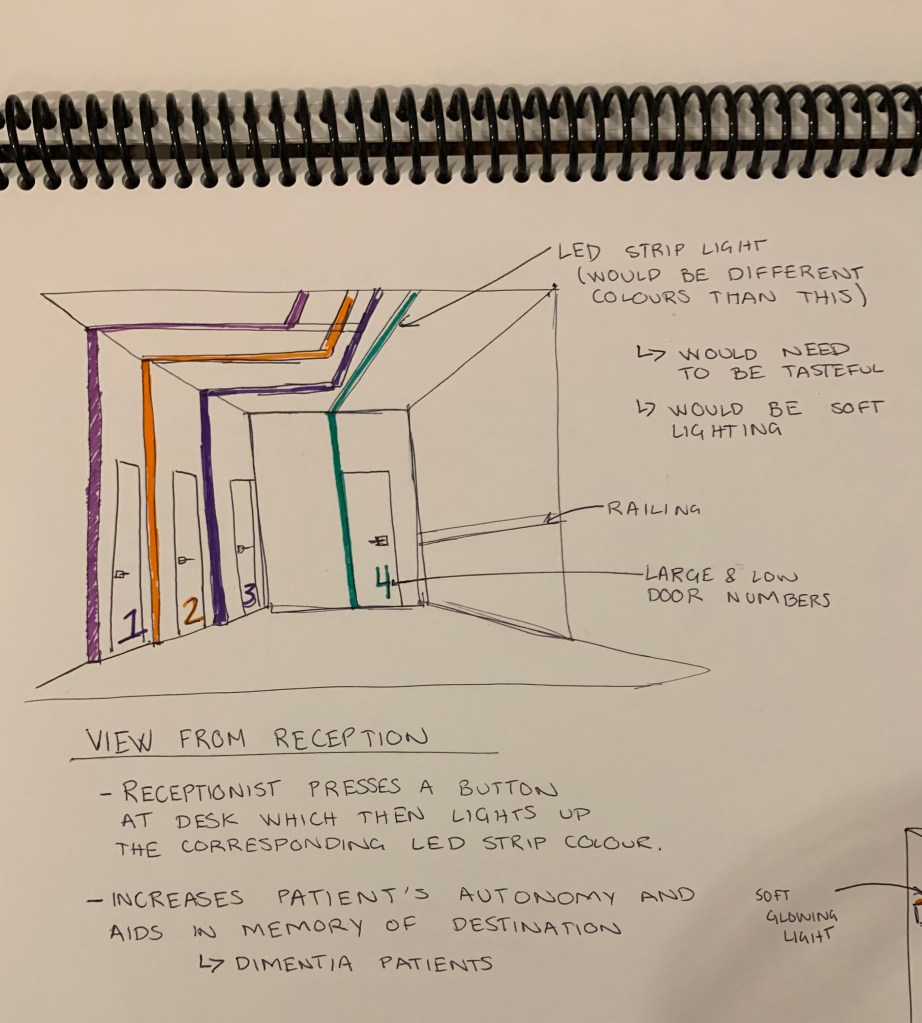 LED STRIP LIGHT
(WOULD BE DIFFERENT
COLOURS THAN THIS)
↳ WOULD NEED
TO BE TASTEFUL
↳ WOULD BE SOFT
LIGHTING
RAILING
LARGE & LOW
DOOR NUMBERS
1
2
3
4
VIEW FROM RECEPTION
- RECEPTIONIST PRESSES A BUTTON
AT DESK WHICH THEN LIGHTS UP
THE CORRESPONDING LED STRIP COLOUR.
- INCREASES PATIENT'S AUTONOMY AND
AIDS IN MEMORY OF DESTINATION
↳ DIMENTIA PATIENTS
SOFT
GLOWING
LIGHT